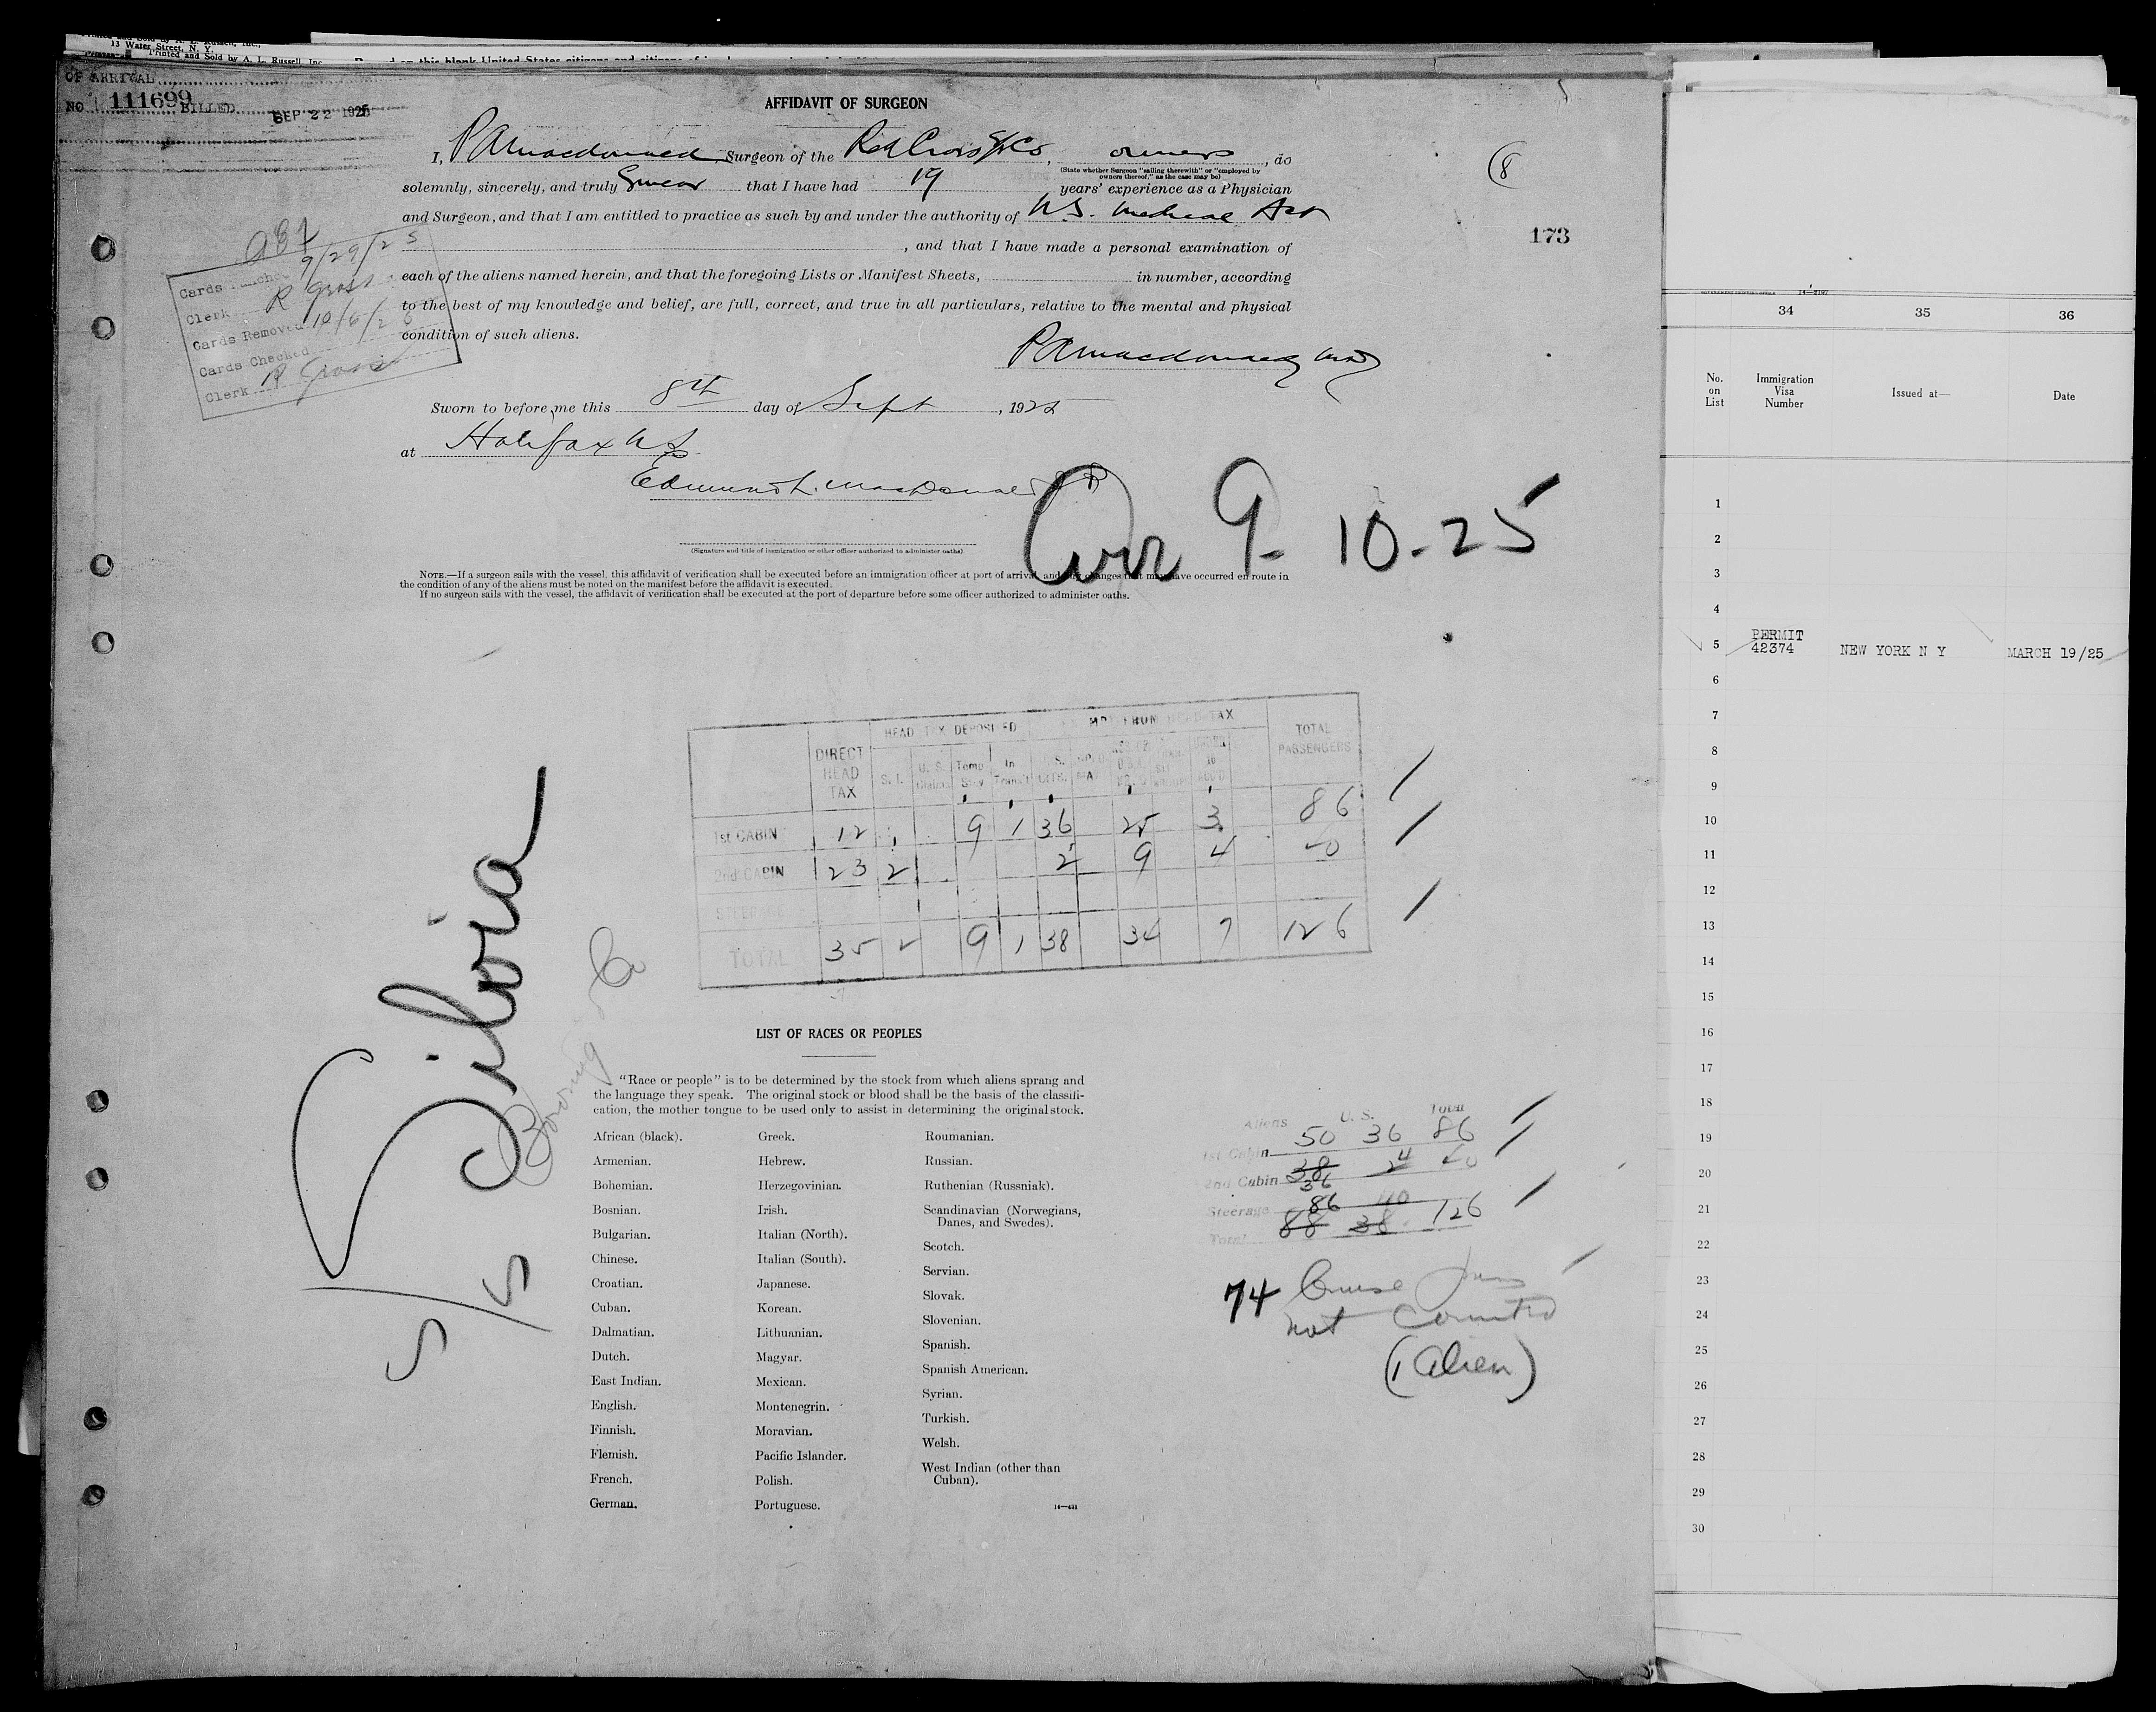 13 Water Street, N. Y.
Printed and Sold by A. L. Russell, Inc.
OF ARRIVAL
NO 111699 BILLED SEP 22 1925
AFFIDAVIT OF SURGEON
I, P A Macdonald, Surgeon of the Red Cross S/S Co, owners, do
(State whether Surgeon "sailing therewith" or "employed by
owners thereof," as the case may be)
solemnly, sincerely, and truly Swear that I have had 19 years' experience as a Physician
and Surgeon, and that I am entitled to practice as such by and under the authority of N.S. Medical Act
, and that I have made a personal examination of
each of the aliens named herein, and that the foregoing Lists or Manifest Sheets, in number, according
to the best of my knowledge and belief, are full, correct, and true in all particulars, relative to the mental and physical
condition of such aliens.
P A Macdonald MD
Sworn to before me this 8th day of Sept, 1925
at Halifax N S
Edmund L. MacDonald J P
(Signature and title of immigration or other officer authorized to administer oaths)
(8
173
9/29/25
Cards
Clerk R Gross
Cards Removed 10/6/25
Cards Checked
Clerk R Gross
Arr 9-10-25
NOTE.—If a surgeon sails with the vessel, this affidavit of verification shall be executed before an immigration officer at port of arrival, and any changes that may have occurred en route in
the condition of any of the aliens must be noted on the manifest before the affidavit is executed.
If no surgeon sails with the vessel, the affidavit of verification shall be executed at the port of departure before some officer authorized to administer oaths.
HEAD TAX DEPOSITED EXEMPT FROM HEAD TAX
DIRECT HEAD TAX S. I. U. S. Temp Stay In Transit U. S. CITS. UNDER 16 TOTAL PASSENGERS
1st CABIN 12 9 1 36 25 3 86
2nd CABIN 23 2 2 9 4 40
STEERAGE
TOTAL 35 2 9 1 38 34 7 126
S/S Silvia
Bowring & Co
LIST OF RACES OR PEOPLES
"Race or people" is to be determined by the stock from which aliens sprang and
the language they speak. The original stock or blood shall be the basis of the classifi-
cation, the mother tongue to be used only to assist in determining the original stock.
African (black).
Armenian.
Bohemian.
Bosnian.
Bulgarian.
Chinese.
Croatian.
Cuban.
Dalmatian.
Dutch.
East Indian.
English.
Finnish.
Flemish.
French.
German.
Greek.
Hebrew.
Herzegovinian.
Irish.
Italian (North).
Italian (South).
Japanese.
Korean.
Lithuanian.
Magyar.
Mexican.
Montenegrin.
Moravian.
Pacific Islander.
Polish.
Portuguese.
Roumanian.
Russian.
Ruthenian (Russniak).
Scandinavian (Norwegians,
Danes, and Swedes).
Scotch.
Servian.
Slovak.
Slovenian.
Spanish.
Spanish American.
Syrian.
Turkish.
Welsh.
West Indian (other than
Cuban).
14—431
Aliens U. S. Total
1st Cabin 50 36 86
2nd Cabin 38 36 2 4 40
Steerage 86 40
Total 88 38 126
74 Cruise
not Counted
(1 Alien)
34 35 36
No.
on
List
Immigration
Visa
Number
Issued at—
Date
1
2
3
4
5 PERMIT 42374 NEW YORK N Y MARCH 19/25
6
7
8
9
10
11
12
13
14
15
16
17
18
19
20
21
22
23
24
25
26
27
28
29
30